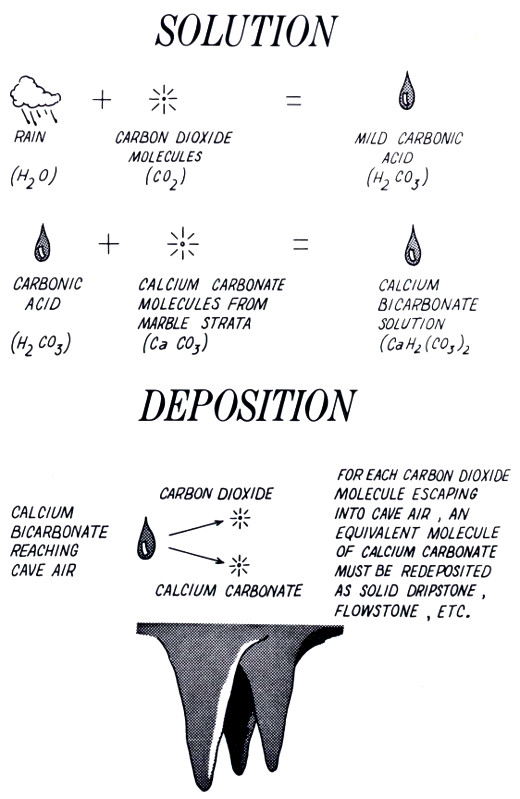 SOLUTION
+
=
RAIN
(H₂O)
CARBON DIOXIDE
MOLECULES
(CO₂)
MILD CARBONIC
ACID
(H₂CO₃)
+
=
CARBONIC
ACID
(H₂CO₃)
CALCIUM CARBONATE
MOLECULES FROM
MARBLE STRATA
(Ca CO₃)
CALCIUM
BICARBONATE
SOLUTION
(CaH₂(CO₃)₂
DEPOSITION
CALCIUM
BICARBONATE
REACHING
CAVE AIR
CARBON DIOXIDE
CALCIUM CARBONATE
FOR EACH CARBON DIOXIDE
MOLECULE ESCAPING
INTO CAVE AIR , AN
EQUIVALENT MOLECULE
OF CALCIUM CARBONATE
MUST BE REDEPOSITED
AS SOLID DRIPSTONE ,
FLOWSTONE , ETC.